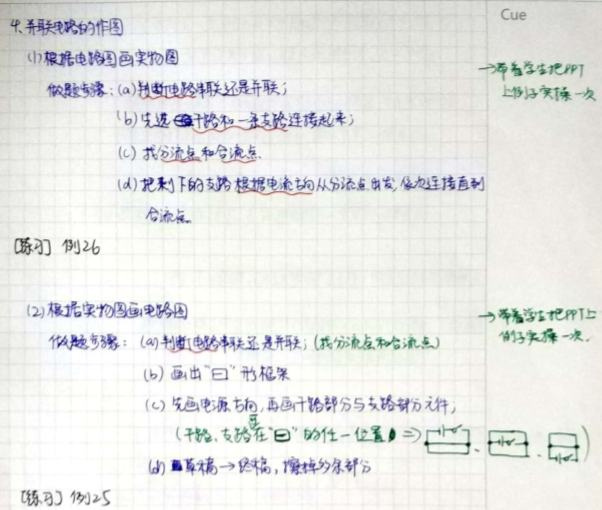 4. 并联电路的作图
Cue
(1) 根据电路图画实物图
→带着学生把PPT
上例子实操一次
做题步骤：(a) 判断电路串联还是并联；
(b) 先选干路和一条支路连接起来；
(c) 找分流点和合流点
(d) 把剩下的支路根据电流方向从分流点出发，依次连接直到
合流点。
[练习] 例26
(2) 根据实物图画电路图
→带着学生把PPT上
例子实操一次.
做题步骤：(a) 判断电路串联还是并联；(找分流点和合流点)
(b) 画出“日”形框架
(c) 先画电源方向，再画干路部分与支路部分元件；
(干路、支路可在“日”的任一位置 ⇒ 、 、 )
(d) 草稿→终稿，擦掉多余部分
[练习] 例25